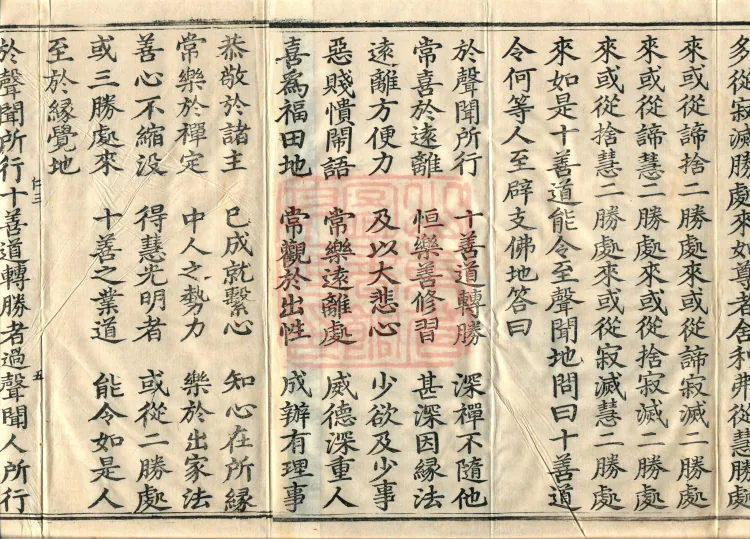 多從寂滅勝處來如尊者舍利弗從慧
來或從諦捨二勝處來或從諦寂滅二勝處
來或從諦慧二勝處來或從捨寂滅二勝處
來或從捨慧二勝處來或從寂滅慧二勝處
來如是十善道能令至聲聞地問曰十善道
令何等人至辟支佛地答曰
於聲聞所行 十善道轉勝 深禪不隨他
常喜於遠離 恒樂善修習 甚深因緣法
遠離方便力 及以大悲心 少欲及少事
惡賤憒閙語 常樂遠離處 威德深重人
喜為福田地 常觀於出性 成辦有理事
恭敬於諸主 已成就繫心 知心在所緣
常樂於禪定 中人之勢力 樂於出家法
善心不縮没 得慧光明者 或從二勝處
或三勝處來 十善之業道 能令如是人
至於緣覺地
於聲聞所行十善道轉勝者過聲聞人所行
五